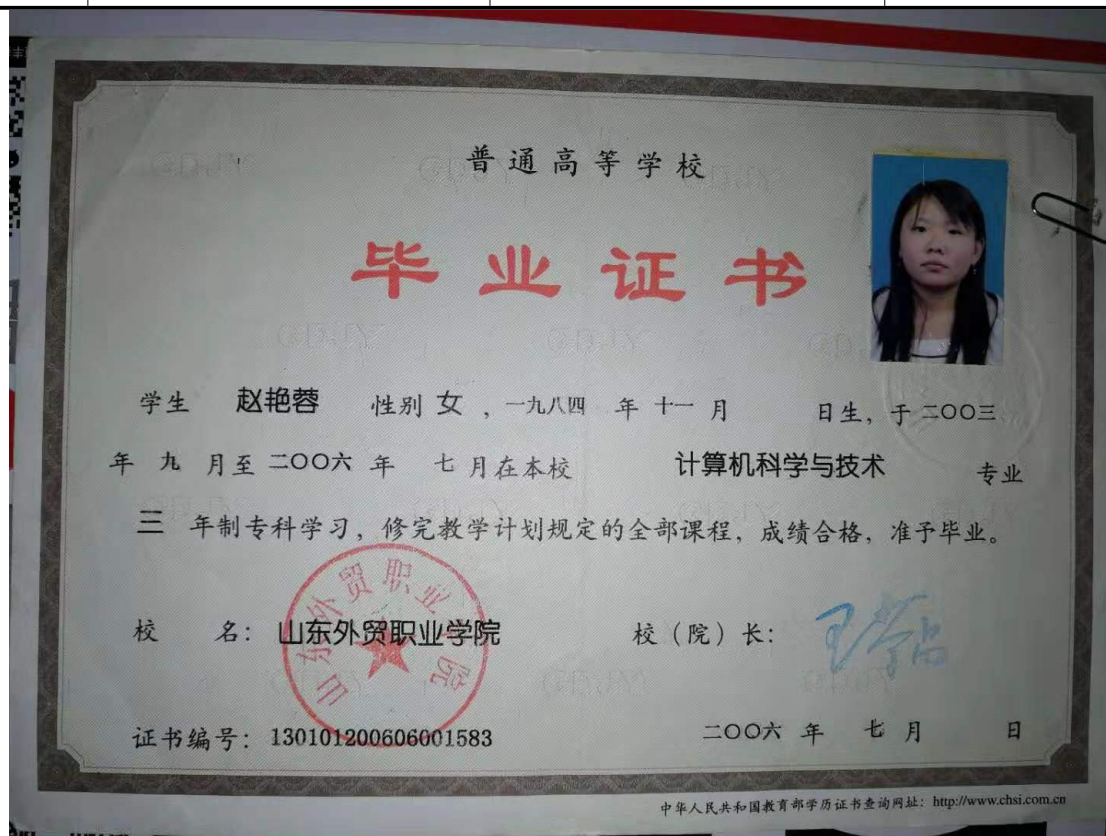 普通高等学校
毕业证书
学生 赵艳蓉 性别 女 ，一九八四 年 十一 月 日生，于 二〇〇三
年 九 月至 二〇〇六 年 七 月在本校 计算机科学与技术 专业
三 年制专科学习，修完教学计划规定的全部课程，成绩合格，准予毕业。
校 名：山东外贸职业学院 校（院）长：
山东外贸职业学院
证书编号：130101200606001583 二〇〇六 年 七 月 日
中华人民共和国教育部学历证书查询网址：http://www.chsi.com.cn